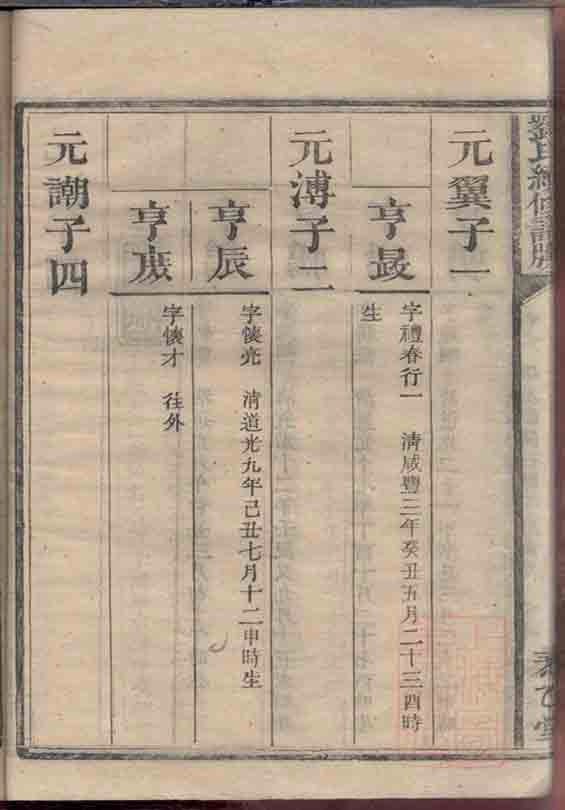 劉氏續修譜牒
元翼子一
亨晸
字禮春行一 清咸豐三年癸丑五月二十三酉時
生
元溥子二
亨辰
字懷亮 清道光九年己丑七月十二申時生
亨庻
字懷才 往外
元謿子四